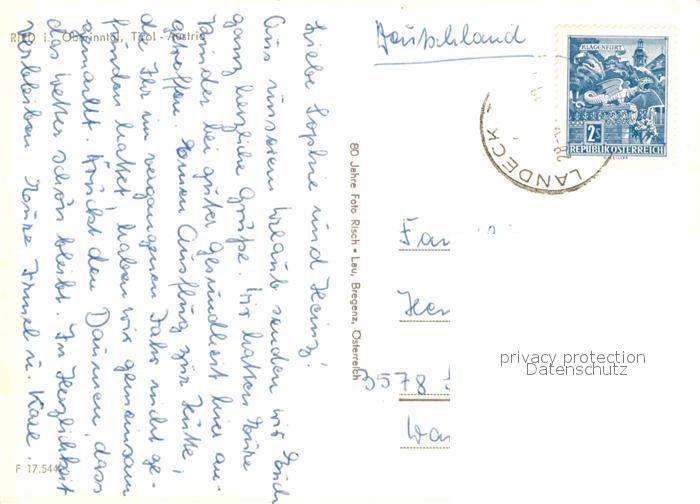 RIED i. Oberinntal, Tirol - Austria
Liebe Sophie und Heinz!
Aus unserem Urlaub senden wir Euch
ganz herzliche Grüße. Wir haben Eure
Kinder bei guter Gesundheit hier an-
getroffen. Einen Ausflug zur Hütte,
die Ihr im vergangenen Jahr nicht ge-
funden hattet, haben wir gemeinsam
gemacht. Drückt den Daumen, dass
das Wetter schön bleibt. In Herzlichkeit
verbleiben Eure Irmel u. Karl.
F 17.544
80 Jahre Foto Risch • Lau, Bregenz, Österreich
Deutschland
KLAGENFURT
2 S
REPUBLIK ÖSTERREICH
LANDECK
Fam
3578
privacy protection
Datenschutz